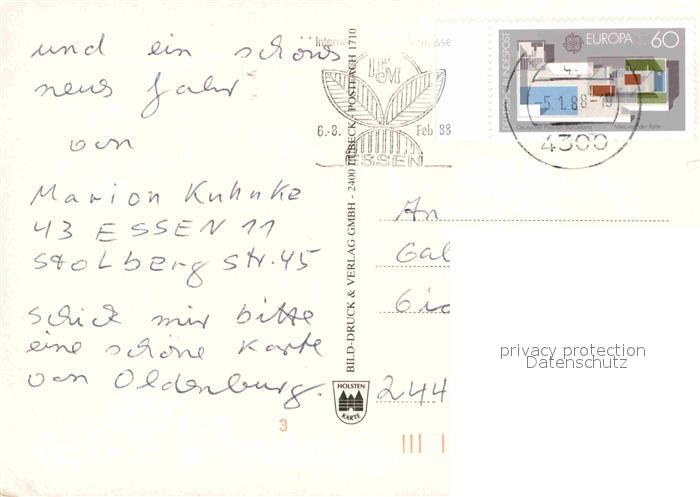 und ein schönes
neues Jahr
von
Marion Kuhnke
43 ESSEN 11
Stolberg str. 45
schick mir bitte
eine schöne Karte
von Oldenburg.
BILD-DRUCK & VERLAG GMBH - 2400 LÜBECK, POSTFACH 1710
HOLSTEN
KARTE
3
IPM
6.-8. Feb 88
ESSEN
DEUTSCHE BUNDESPOST
EUROPA
60
-5.1.88-19
4300
An
Gal
244
privacy protection
Datenschutz